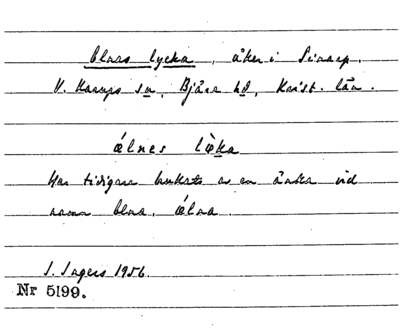 Elnas lycka, åker i Sinarp.
V. Karups sn, Bjäre hd, Krist. län.
ǽlnes lø̀ka
Har tidigare brukats av en änka vid
namn Elna, ǽlna.
I. Ingers 1956.
Nr 5199.